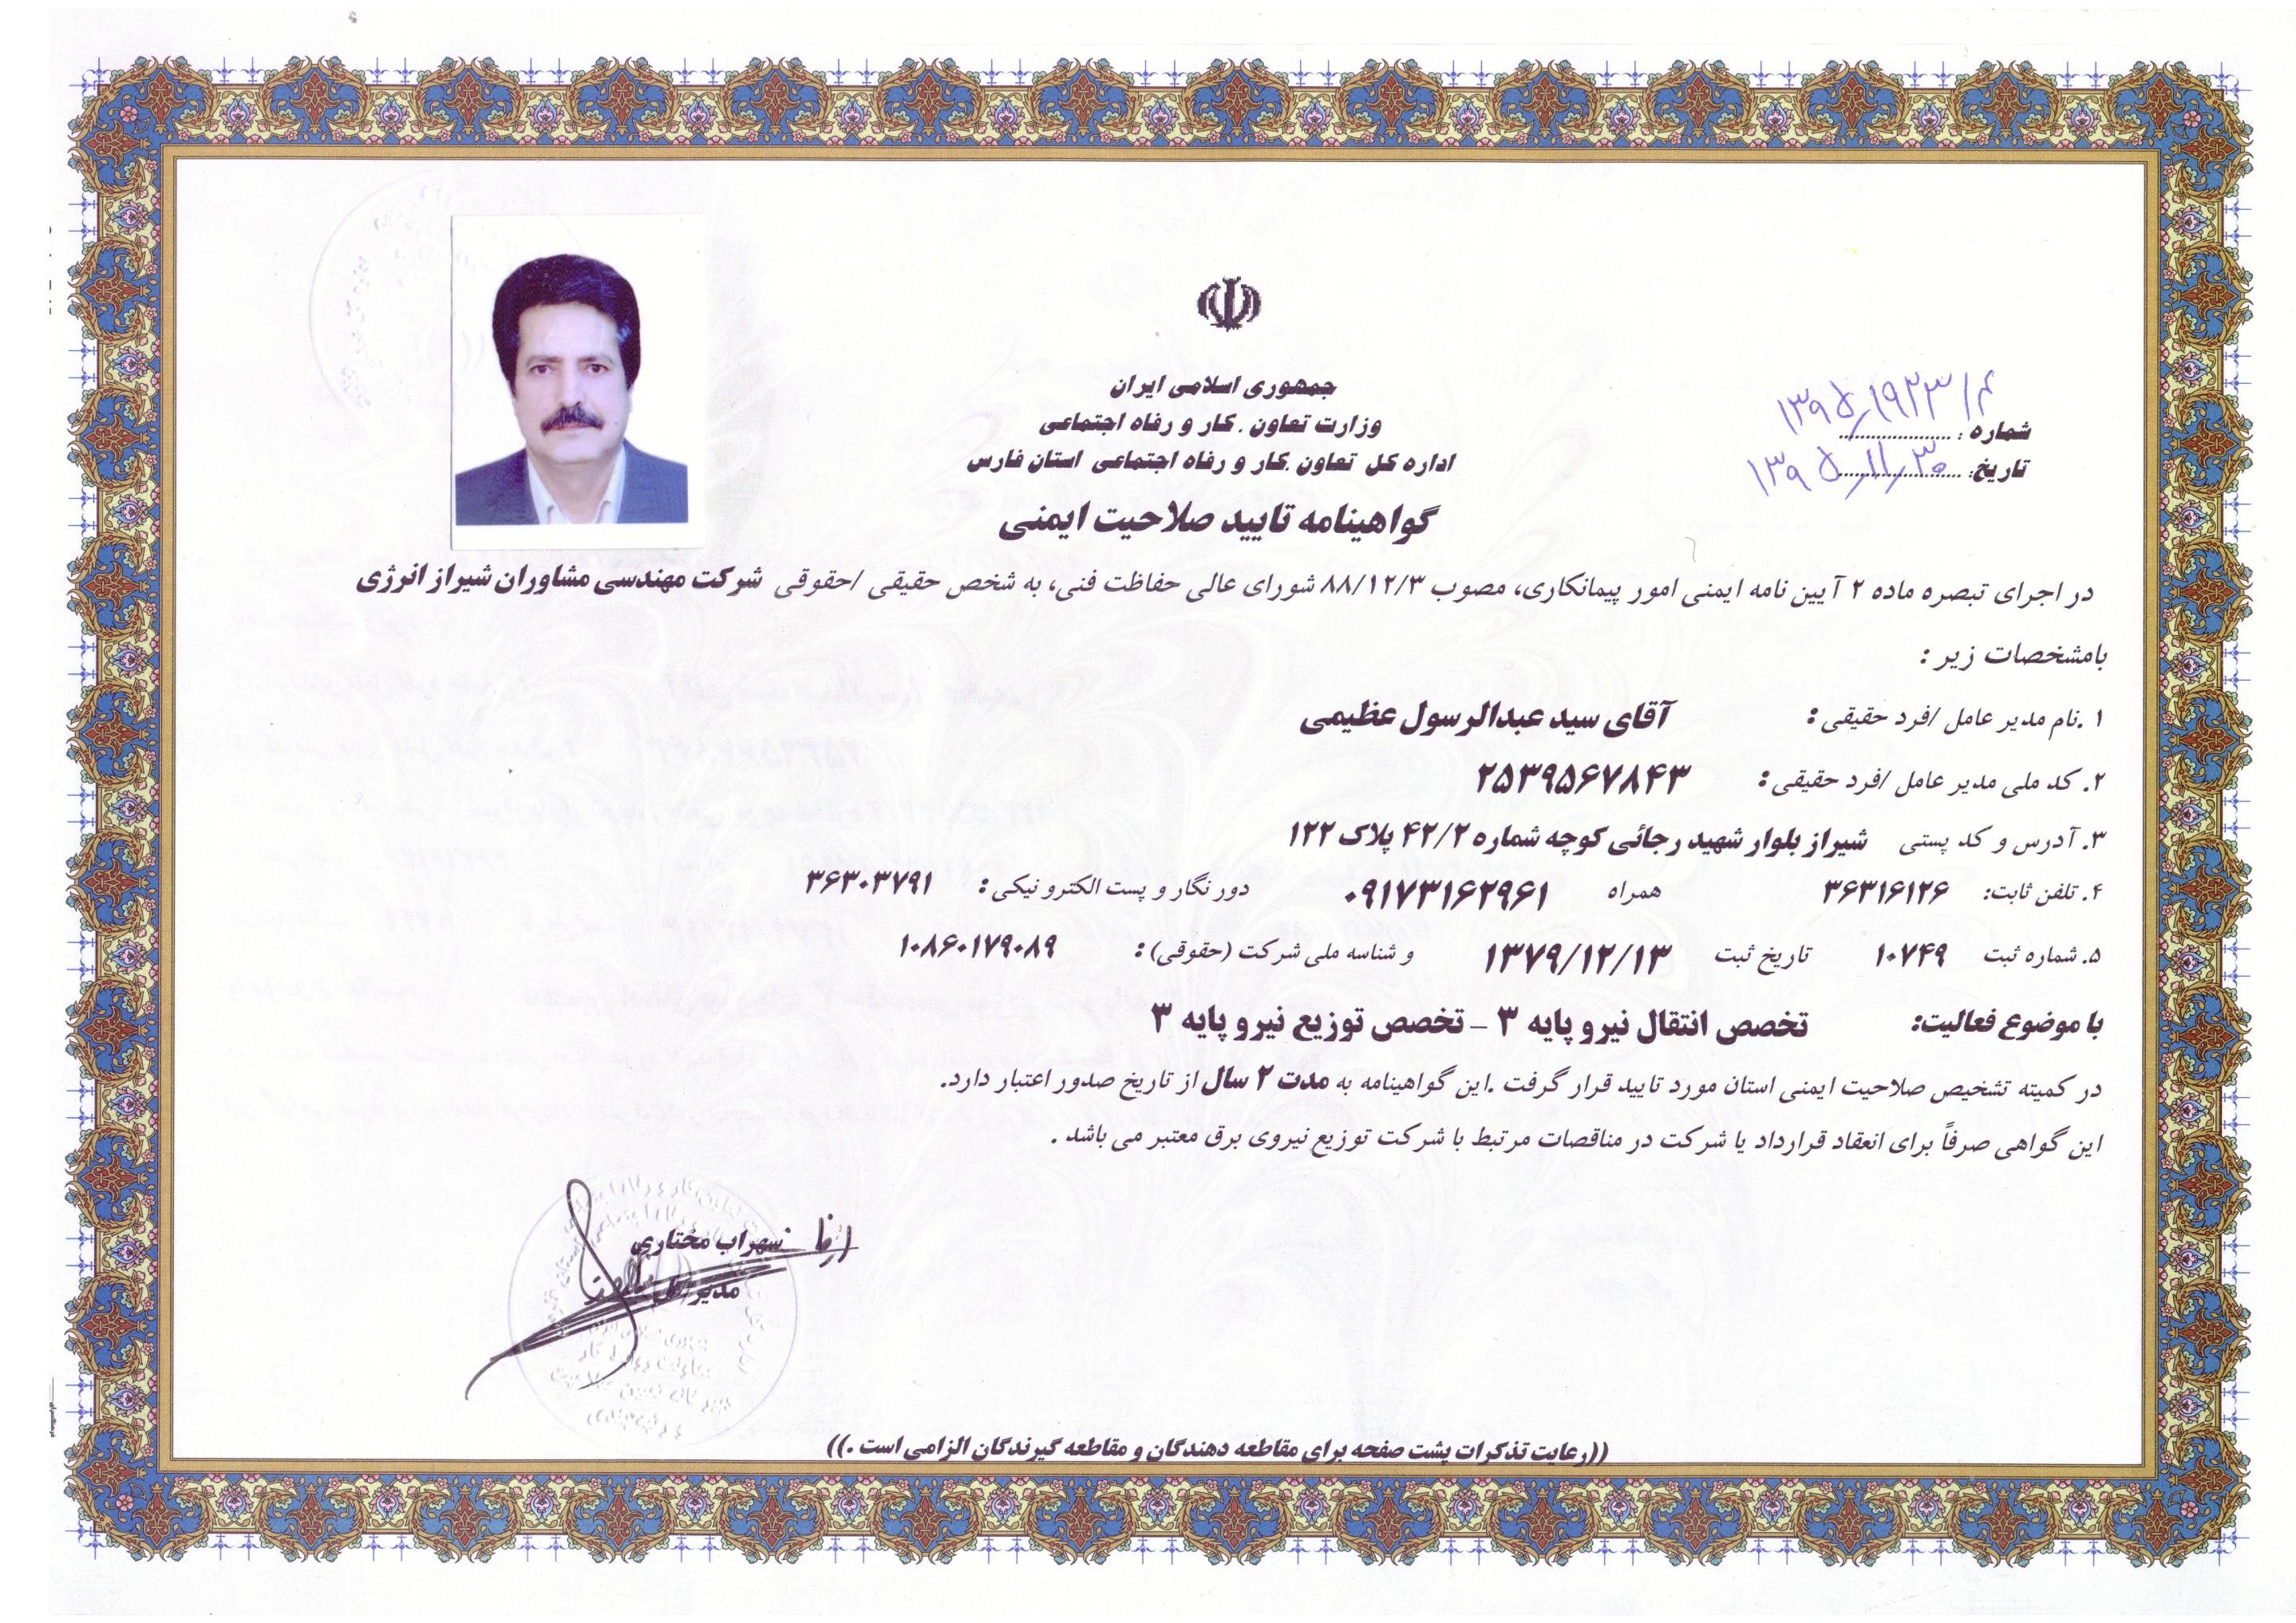 جمهوری اسلامی ایران
وزارت تعاون . کار و رفاه اجتماعی
اداره کل تعاون .کار و رفاه اجتماعی استان فارس
شماره :
تاریخ: ۱۳۹۵/۱۱/۳۰
گواهینامه تایید صلاحیت ایمنی
در اجرای تبصره ماده ۲ آیین نامه ایمنی امور پیمانکاری، مصوب ۸۸/۱۲/۳ شورای عالی حفاظت فنی، به شخص حقیقی /حقوقی شرکت مهندسی مشاوران شیراز انرژی
بامشخصات زیر :
۱ .نام مدیر عامل /فرد حقیقی : آقای سید عبدالرسول عظیمی
۲. کد ملی مدیر عامل /فرد حقیقی : ۲۵۳۹۵۶۷۸۴۳
۳. آدرس و کد پستی شیراز بلوار شهید رجائی کوچه شماره ۴۲/۲ پلاک ۱۲۲
۴. تلفن ثابت: ۳۶۳۱۶۱۲۶ همراه ۰۹۱۷۳۱۶۲۹۶۱ دور نگار و پست الکترونیکی : ۳۶۳۰۳۷۹۱
۵. شماره ثبت ۱۰۷۴۹ تاریخ ثبت ۱۳۷۹/۱۲/۱۳ و شناسه ملی شرکت (حقوقی) : ۱۰۸۶۰۱۷۹۰۸۹
با موضوع فعالیت: تخصص انتقال نیرو پایه ۳ – تخصص توزیع نیرو پایه ۳
در کمیته تشخیص صلاحیت ایمنی استان مورد تایید قرار گرفت .این گواهینامه به مدت ۲ سال از تاریخ صدور اعتبار دارد.
این گواهی صرفاً برای انعقاد قرارداد یا شرکت در مناقصات مرتبط با شرکت توزیع نیروی برق معتبر می باشد .
سهراب مختاری
مدیر کل
((رعایت تذکرات پشت صفحه برای مقاطعه دهندگان و مقاطعه گیرندگان الزامی است .))